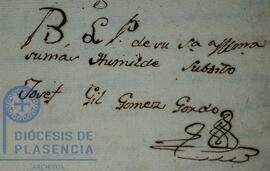 B. L. P. de su Sa Illma
su mas Humilde Subdito
Josef Gil Gomez Gordo
DIÓCESIS DE
PLASENCIA
ARCHIVOS